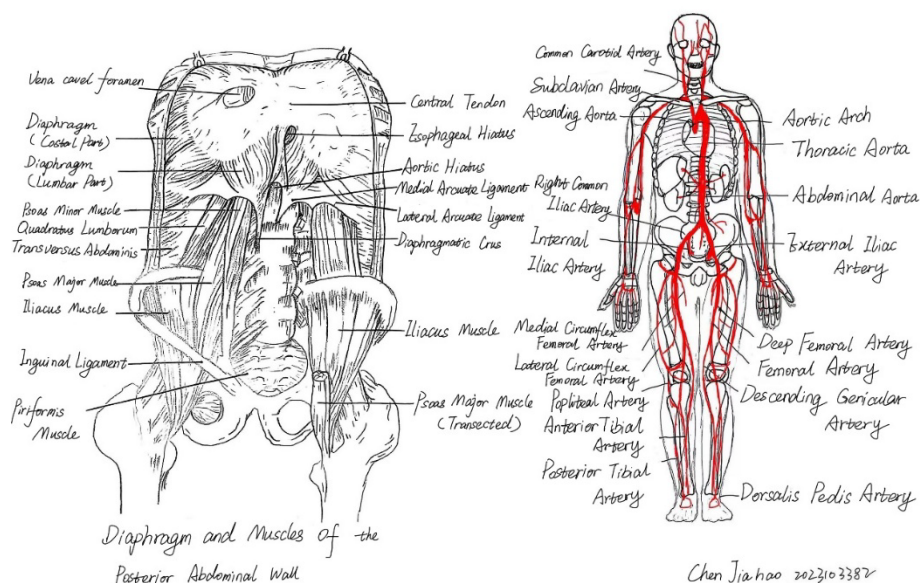 Vena cavel foramen
Diaphragm
(Costal Part)
Diaphragm
(Lumbar Part)
Psoas Minor Muscle
Quadratus Lumborum
Transversus Abdominis
Psoas Major Muscle
Iliacus Muscle
Inguinal Ligament
Piriformis
Muscle
Central Tendon
Esophageal Hiatus
Aortic Hiatus
Medial Arcuate Ligament
Lateral Arcuate Ligament
Diaphragmatic Crus
Iliacus Muscle
Psoas Major Muscle
(Transected)
Diaphragm and Muscles Of the
Posterior Abdominal Wall
Common Carotid Artery
Subclavian Artery
Ascending Aorta
Right Common
Iliac Artery
Internal
Iliac Artery
Medial Circumflex
Femoral Artery
Lateral Circumflex
Femoral Artery
Popliteal Artery
Anterior Tibial
Artery
Posterior Tibial
Artery
Aortic Arch
Thoracic Aorta
Abdominal Aorta
External Iliac
Artery
Deep Femoral Artery
Femoral Artery
Descending Genicular
Artery
Dorsalis Pedis Artery
Chen Jiahao 2023103382